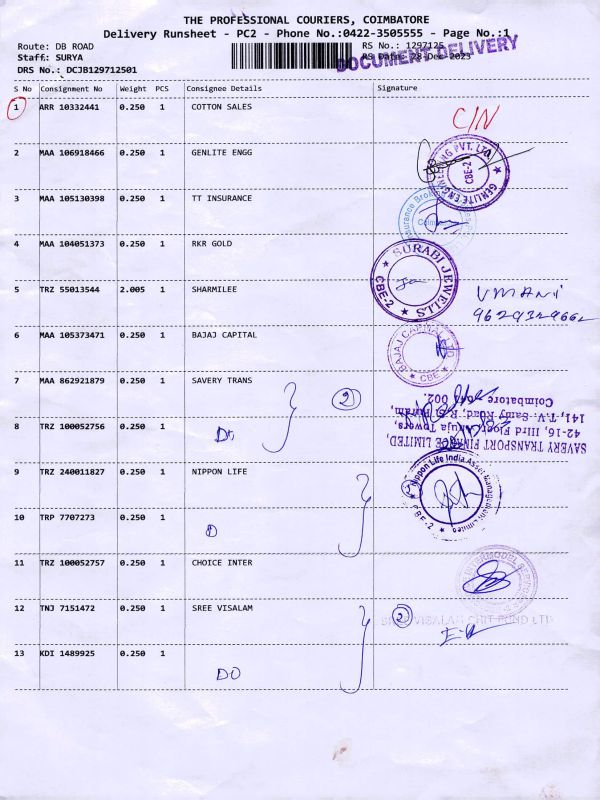 THE PROFESSIONAL COURIERS, COIMBATORE
Delivery Runsheet - PC2 - Phone No.:0422-3505555 - Page No.:1
Route: DB ROAD
RS No.: 1297125
DOCUMENT DELIVERY
Staff: SURYA
RS Date: 28-Dec-2023
DRS No.: DCJB129712501
S No Consignment No Weight PCS Consignee Details Signature
1 ARR 10332441 0.250 1 COTTON SALES
C/N
2 MAA 106918466 0.250 1 GENLITE ENGG
GENLITE ENGINEERING PVT. LTD. CBE-2
3 MAA 105130398 0.250 1 TT INSURANCE
4 MAA 104051373 0.250 1 RKR GOLD
SURABI JEWELLS CBE-2
5 TRZ 55013544 2.005 1 SHARMILEE
VMANI
9629329662
6 MAA 105373471 0.250 1 BAJAJ CAPITAL
BAJAJ CAPITAL LTD CBE
7 MAA 862921879 0.250 1 SAVERY TRANS
2
SAVERY TRANSPORT FINANCE LIMITED,
42-16, IIIrd Floor, Towers,
141, T.V. Samy Road, R.S. Puram,
Coimbatore 641 002.
8 TRZ 100052756 0.250 1
Do
9 TRZ 240011827 0.250 1 NIPPON LIFE
Nippon Life India Asset Management Limited CBE-2
10 TRP 7707273 0.250 1
D
11 TRZ 100052757 0.250 1 CHOICE INTER
12 TNJ 7151472 0.250 1 SREE VISALAM
2
SREE VISALAM CHIT FUND LTD
13 KDI 1489925 0.250 1
DO